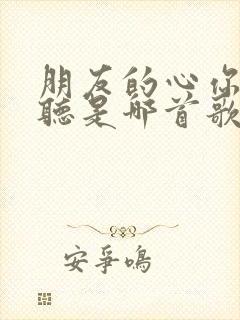 朋友的心你
聽是哪首歌
安爭鳴